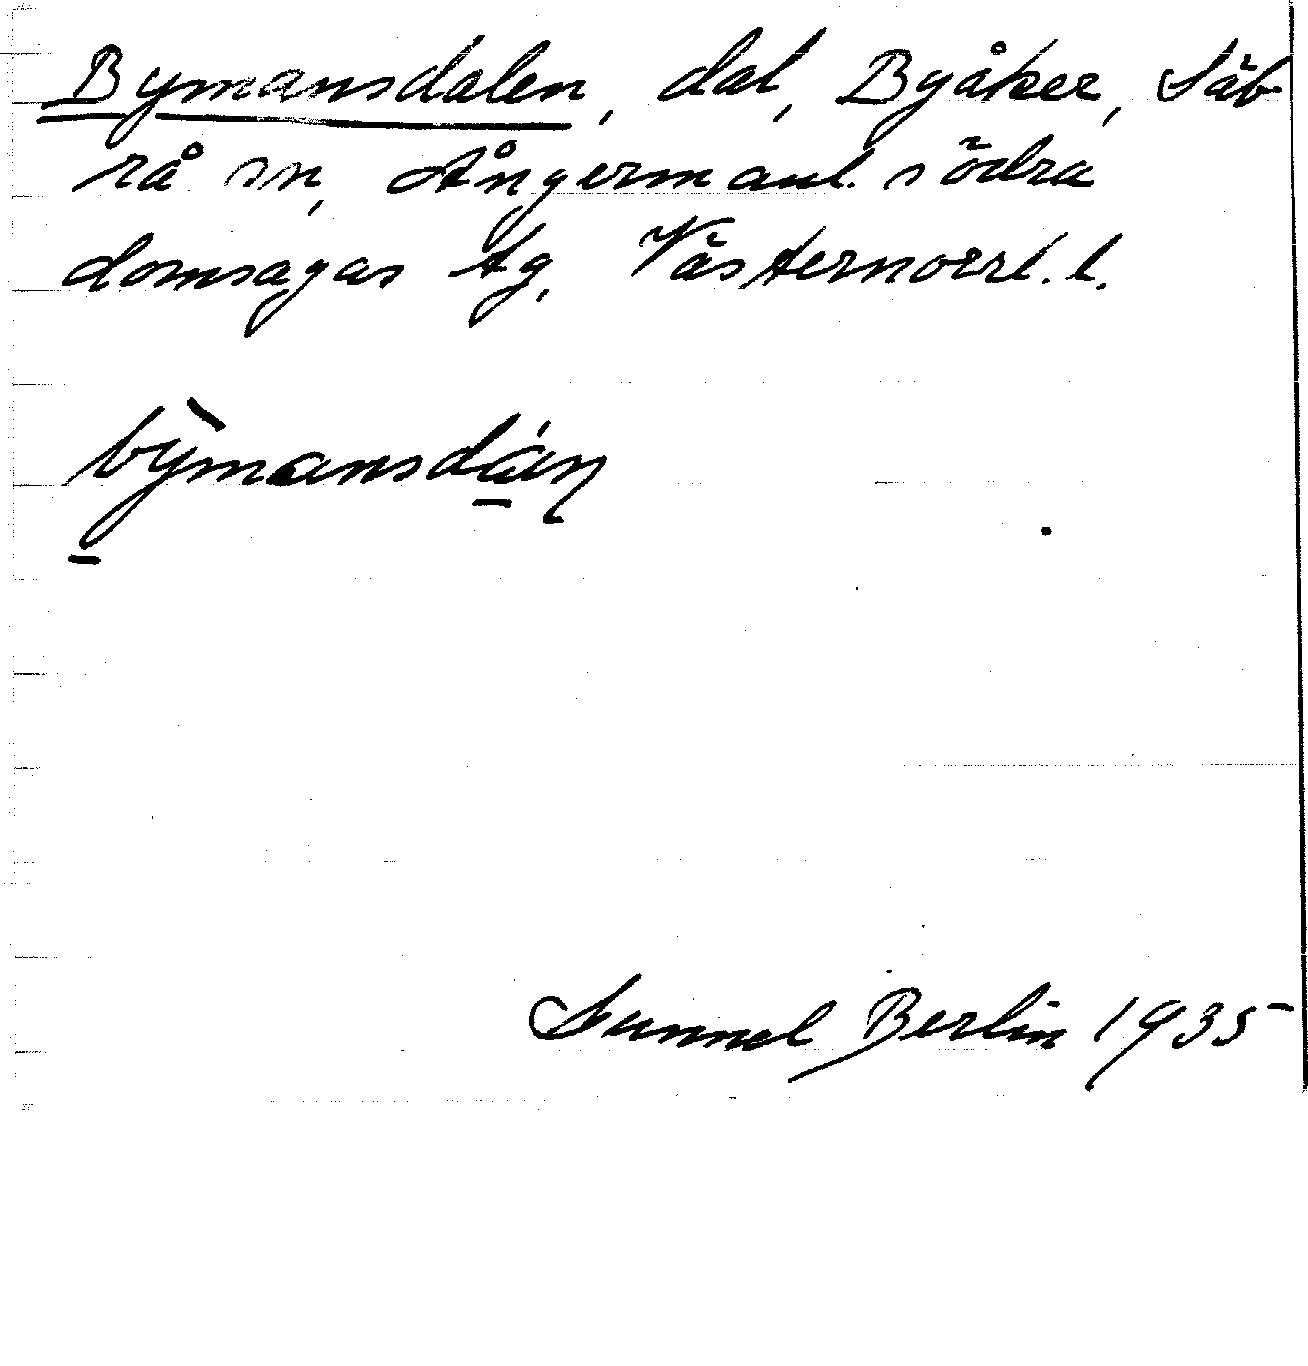 Bymansdalen, dal, Byåker, Säb
rå sn, Ångermanl. södra
domsagas tg, Västernorrl. l.
bỳ̠mansdá̠ṇ
Gunnel Berlin 1935